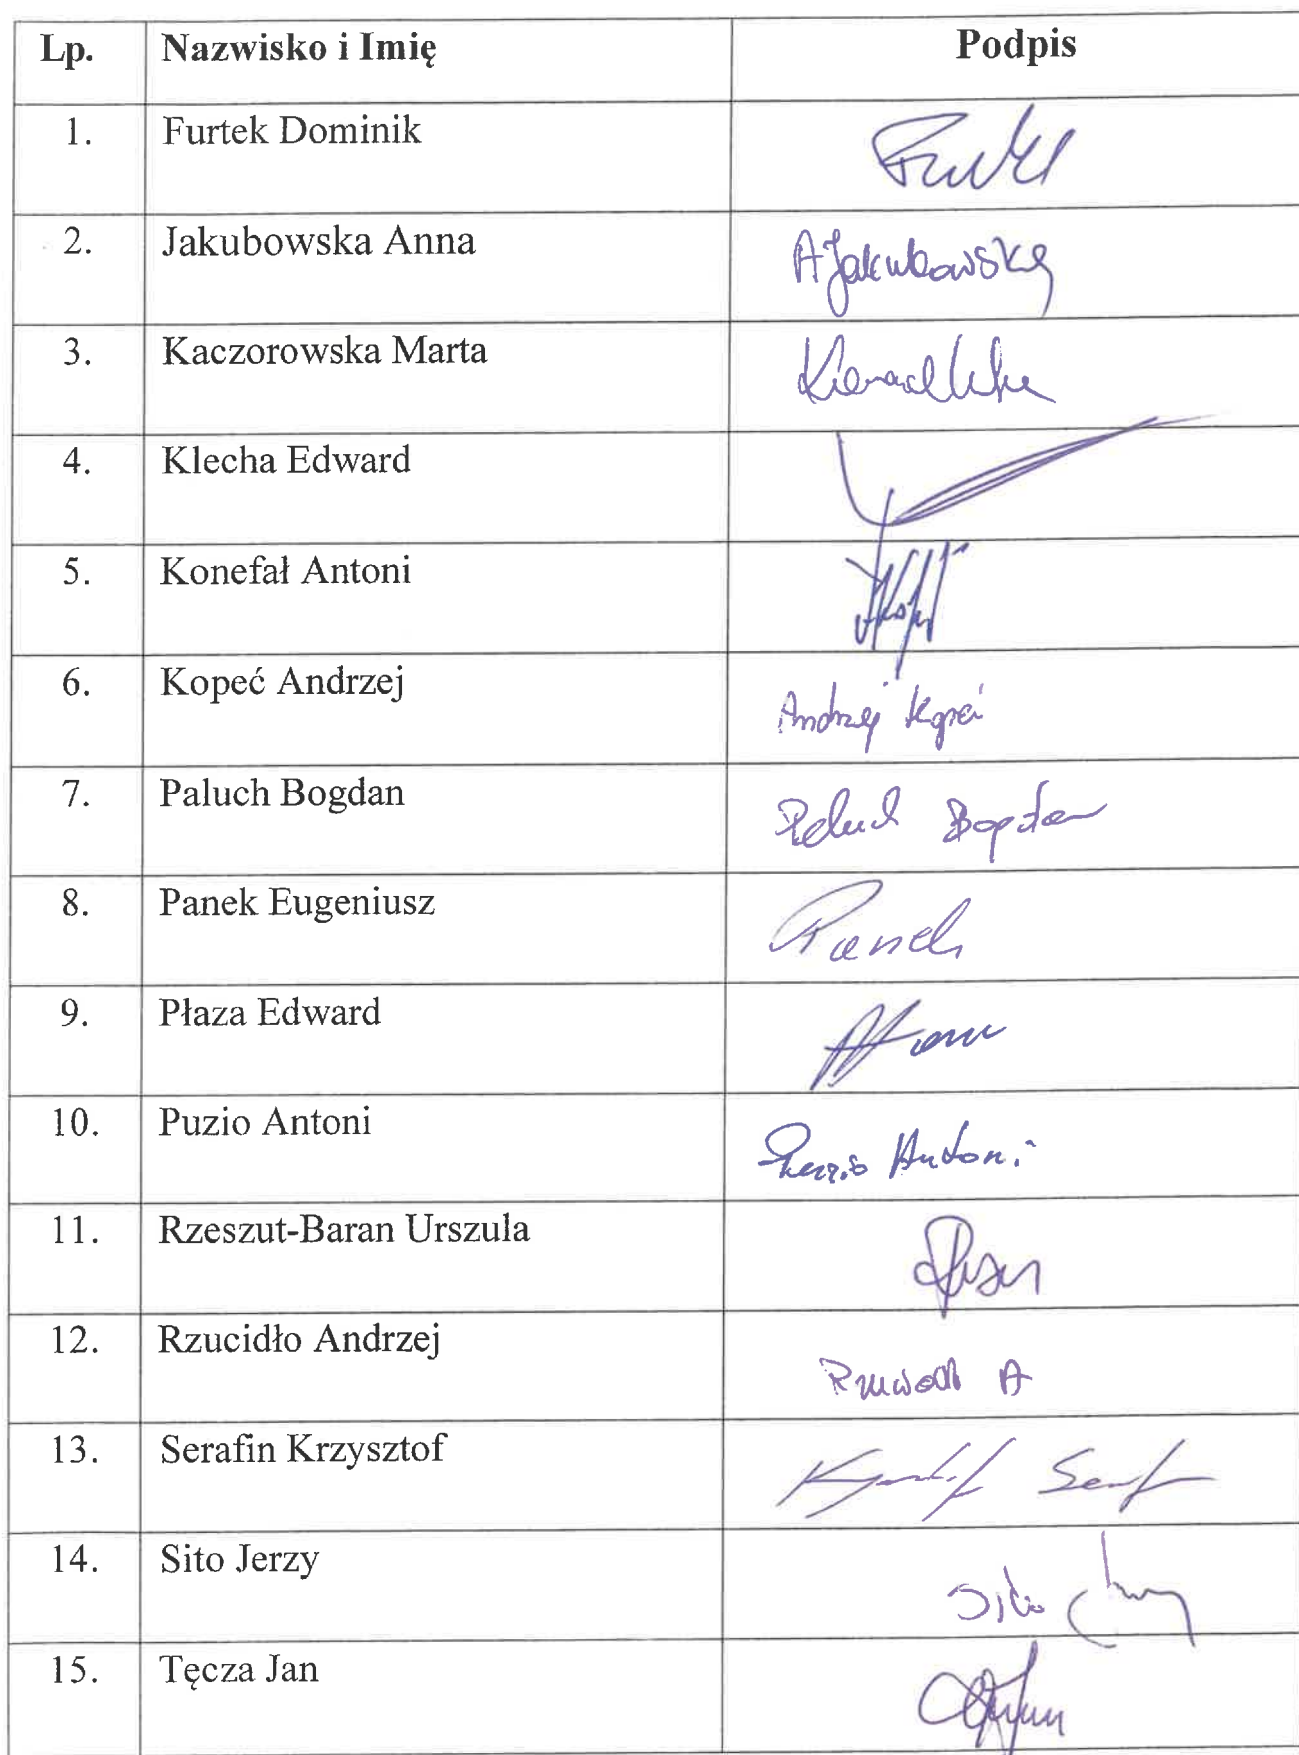 Lp. Nazwisko i Imię Podpis
1. Furtek Dominik
2. Jakubowska Anna A Jakubowska
3. Kaczorowska Marta
4. Klecha Edward
5. Konefał Antoni
6. Kopeć Andrzej Andrzej Kopeć
7. Paluch Bogdan Paluch Bogdan
8. Panek Eugeniusz Panek
9. Płaza Edward
10. Puzio Antoni Puzio Antoni
11. Rzeszut-Baran Urszula
12. Rzucidło Andrzej
13. Serafin Krzysztof
14. Sito Jerzy Sito Jerzy
15. Tęcza Jan